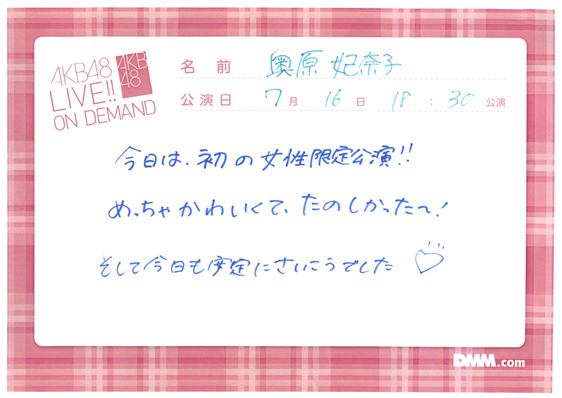 AKB48
LIVE!!
ON DEMAND
AKB
48
名 前 奥原 妃奈子
公演日 7月 16日 18:30 公演
今日は、初の女性限定公演!!
めっちゃかわいくて、たのしかった〜!
そして今日も安定にさいこうでした♡
DMM.com